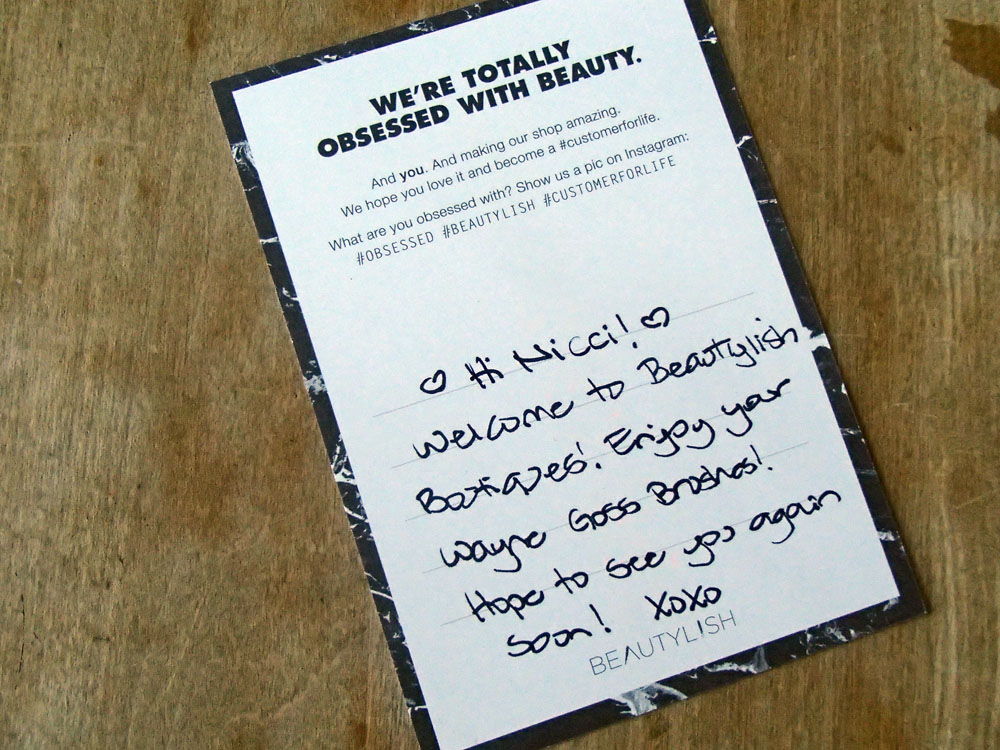 WE'RE TOTALLY
OBSESSED WITH BEAUTY.
And you. And making our shop amazing.
We hope you love it and become a #customerforlife.
What are you obsessed with? Show us a pic on Instagram:
#OBSESSED #BEAUTYLISH #CUSTOMERFORLIFE
♡ Hi Nicci! ♡
Welcome to Beautylish
Boutiques! Enjoy your
Wayne Goss Brushes!
Hope to see you again
soon! XOXO
BEAUTYLISH